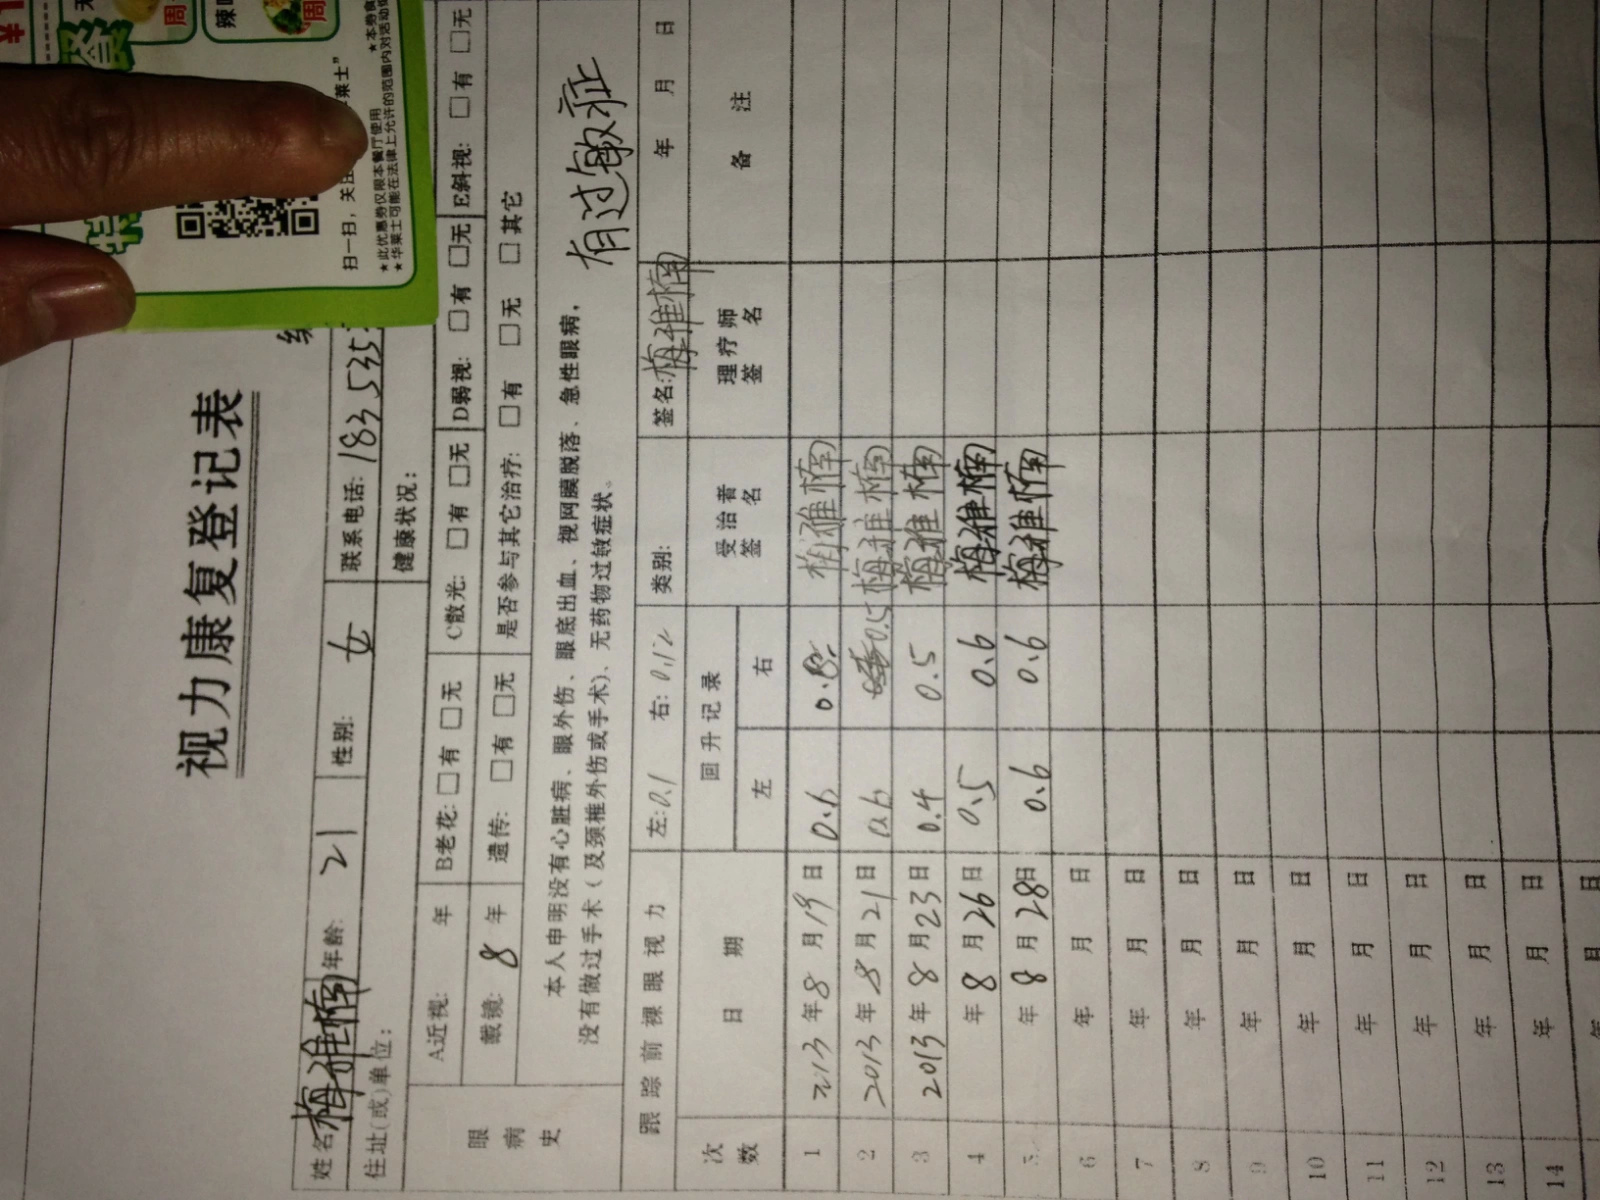 视力康复登记表
姓名 梅雅楠 年龄: 21 性别: 女 联系电话: 183 535
住址(或)单位: 健康状况:
眼病史
A近视: 年 B老花: □有 □无 C散光: □有 □无 D弱视: □有 □无 E斜视: □有 □无
戴镜: 8 年 遗传: □有 □无 是否参与其它治疗: □有 □无 □其它
本人申明没有心脏病、眼外伤、眼底出血、视网膜脱落、急性眼病,
没有做过手术(及颈椎外伤或手术)、无药物过敏症状。
有过敏症
跟踪前裸眼视力 左: 0.1 右: 0.12 类别: 签名: 梅雅楠 年 月 日
次数 日期 回升记录 受治者签名 理疗师签名 备注
左 右
1 2013年8月19日 0.6 梅雅楠
2 2013年8月21日 0.6 0.5 梅雅楠
3 2013年8月23日 0.4 0.5 梅雅楠
4 年8月26日 0.5 0.6 梅雅楠
5 年8月28日 0.6 0.6 梅雅楠
6 年 月 日
7 年 月 日
8 年 月 日
9 年 月 日
10 年 月 日
11 年 月 日
12 年 月 日
13 年 月 日
14 年 月 日
年 月 日
辣
周
扫一扫,关
莱士"
★此优惠券仅限本餐厅使用
★华莱士可能在法律上允许的范围内对活动
★本券